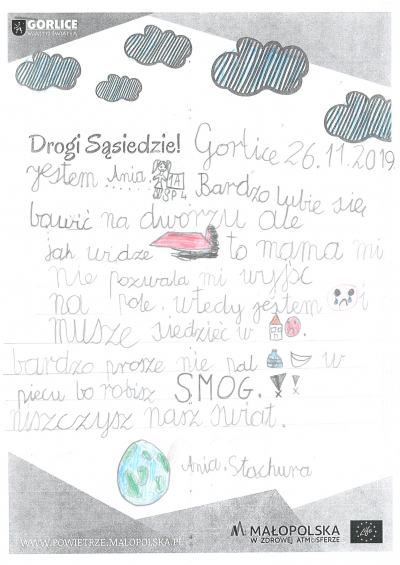 GORLICE
MIASTO ŚWIATŁA
Drogi Sąsiedzie! Gorlice 26.11.2019
jestem Ania 1A
SP4 Bardzo lubie się
bawić na dworzu ale
jak widze to mama mi
nie pozwala mi wyjść
na pole. wtedy jestem i
musze siedzieć w
bardzo prosze nie pal w
piecu bo robisz SMOG.!!
niszczysz nasz świat.
Ania. Stachura
WWW.POWIETRZE.MALOPOLSKA.PL
MAŁOPOLSKA
W ZDROWEJ ATMOSFERZE
Life